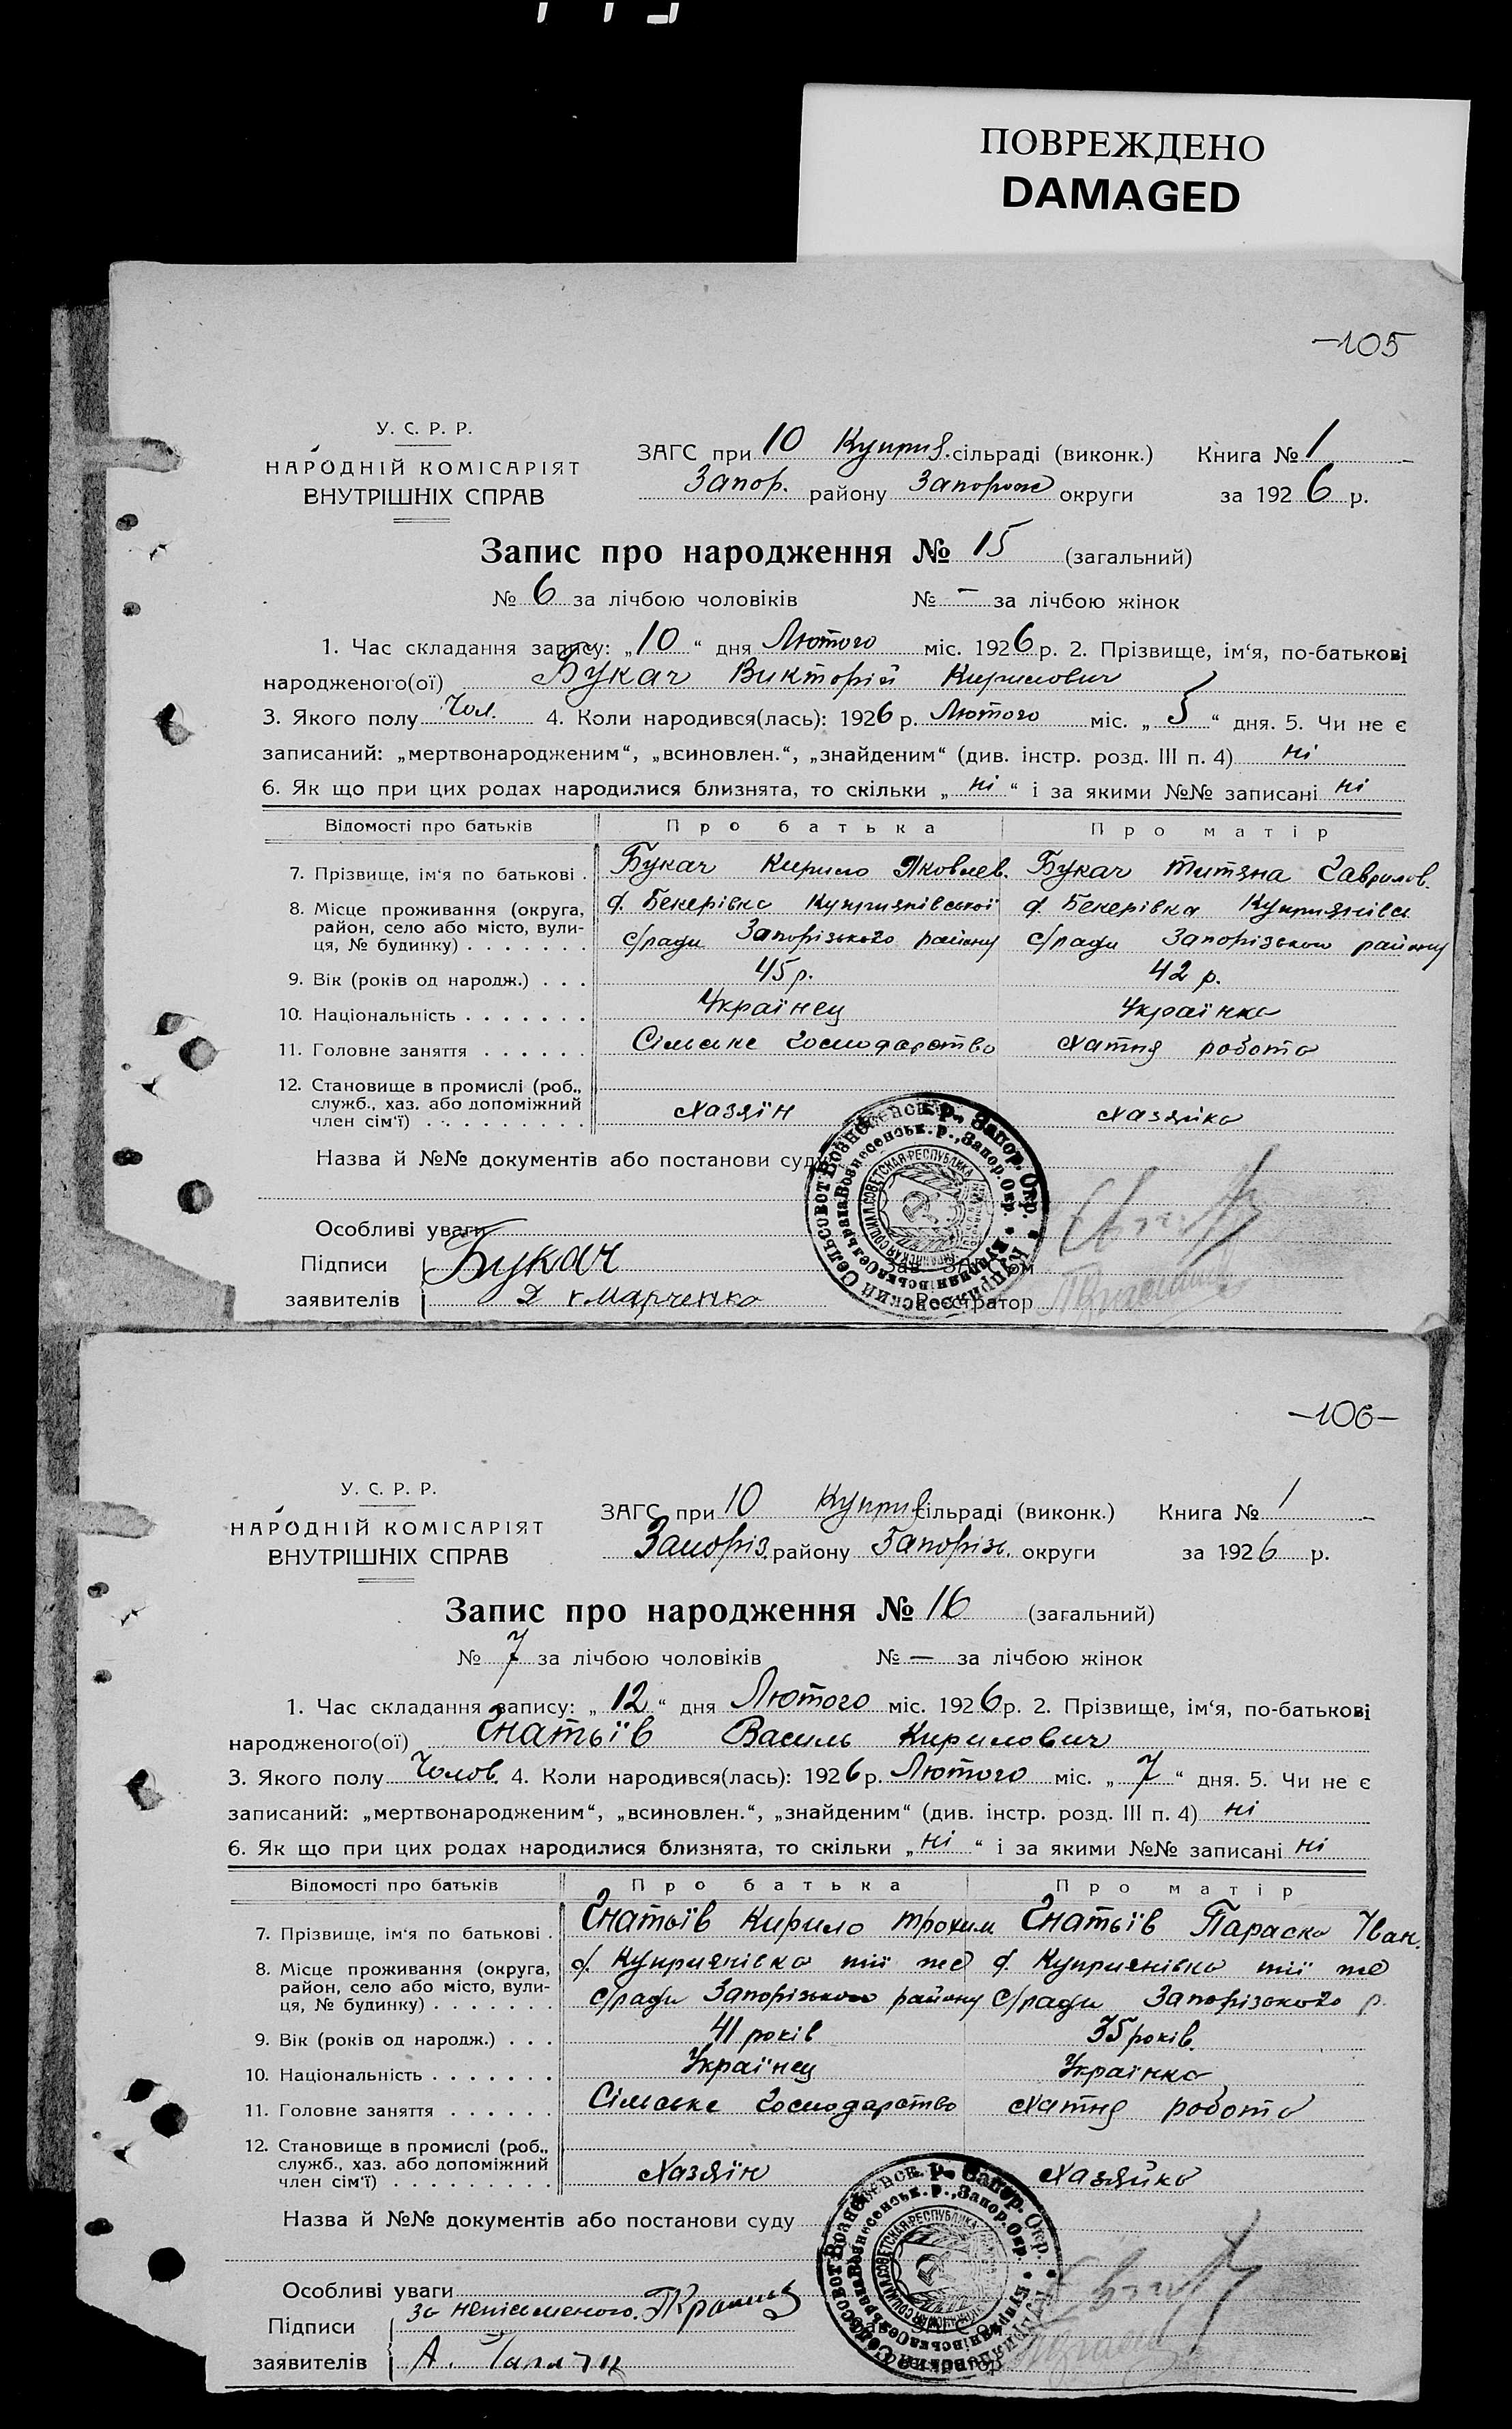 ПОВРЕЖДЕНО
DAMAGED
—105
У. С. Р. Р.
НАРОДНІЙ КОМІСАРІЯТ
ВНУТРІШНІХ СПРАВ
ЗАГС при 10 Куприя. сільраді (виконк.) Книга № 1
Запор. району Запорож округи за 1926 р.
Запис про народження № 15 (загальний)
№ 6 за лічбою чоловіків № — за лічбою жінок
1. Час складання запису: „10“ дня Лютого міс. 1926 р. 2. Прізвище, ім‘я, по-батькові
народженого(ої) Букач Викторій Кирилович
3. Якого полу Чол. 4. Коли народився(лась): 1926 р. Лютого міс. „5“ дня. 5. Чи не є
записаний: „мертвонародженим“, „всиновлен.“, „знайденим“ (див. інстр. розд. III п. 4) ні
6. Як що при цих родах народилися близнята, то скільки „ні“ і за якими №№ записані ні
Відомості про батьків Про батька Про матір
7. Прізвище, ім‘я по батькові . Букач Кирило Яковлев. Букач Титяна Гаврилов.
8. Місце проживання (округа, район, село або місто, вулиця, № будинку) . . . . . . .
с. Бекерівка Куприянівської с. Бекерівка Куприянівс
с/ради Запорізького району с/ради Запорізького району
9. Вік (років од народж.) . . . 45 р. 42 р.
10. Національність . . . . . . . Українец Українка
11. Головне заняття . . . . . . Сільське господарство хатня робота
12. Становище в промислі (роб., служб., хаз. або допоміжний член сім‘ї) . . . . . . . . .
хазяїн хазяйка
Назва й №№ документів або постанови суду
Особливі уваги
Підписи Букач
заявителів Д Марченко
Зав. ЗАГС‘ом
Реєстратор
—106—
У. С. Р. Р.
НАРОДНІЙ КОМІСАРІЯТ
ВНУТРІШНІХ СПРАВ
ЗАГС при 10 Куприя сільраді (виконк.) Книга № 1
Запоріз. району Запоріж. округи за 1926 р.
Запис про народження № 16 (загальний)
№ 7 за лічбою чоловіків № — за лічбою жінок
1. Час складання запису: „12“ дня Лютого міс. 1926 р. 2. Прізвище, ім‘я, по-батькові
народженого(ої) Гнатьїв Василь Кирилович
3. Якого полу Чолов. 4. Коли народився(лась): 1926 р. Лютого міс. „7“ дня. 5. Чи не є
записаний: „мертвонародженим“, „всиновлен.“, „знайденим“ (див. інстр. розд. III п. 4) ні
6. Як що при цих родах народилися близнята, то скільки „ні“ і за якими №№ записані ні
Відомості про батьків Про батька Про матір
7. Прізвище, ім‘я по батькові . Гнатьїв Кирило Трохим Гнатьїв Параска Іван.
8. Місце проживання (округа, район, село або місто, вулиця, № будинку) . . . . . . .
с. Куприянівка тії же с. Куприянівка тії же
с/ради Запорізького району с/ради Запорізького р.
9. Вік (років од народж.) . . . 41 років 35 років.
10. Національність . . . . . . . Українец Українка
11. Головне заняття . . . . . . Сільське господарство хатня робота
12. Становище в промислі (роб., служб., хаз. або допоміжний член сім‘ї) . . . . . . . . .
Хазяїн Хазяйка
Назва й №№ документів або постанови суду
Особливі уваги
Підписи за неписьменого.
заявителів А.